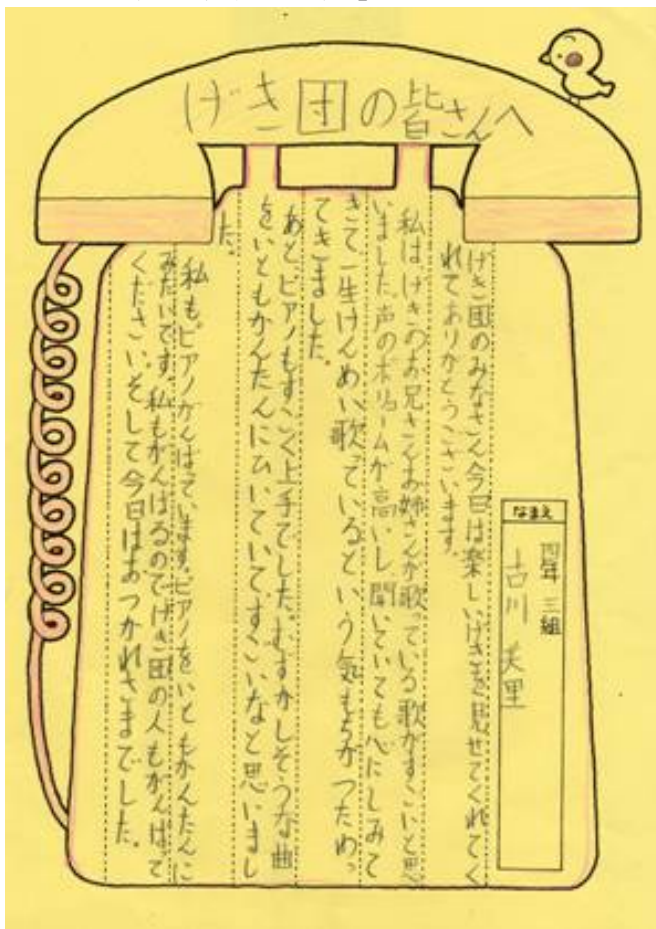 げき団の皆さんへ
なまえ
四年 三組
古川 美里
げき団のみなさん今日は楽しいげきを見せてくれてく
れてありがとうございます。
私は、げきのお兄さんお姉さんが歌っている歌がすごいと思
いました。声のボリュームが高いし、聞いていても心にしみて
きて、一生けんめい歌っているという気もちがつたわっ
てきました。
あと、ピアノもすごく上手でした。むずかしそうな曲
をいともかんたんにひいていてすごいなと思いまし
た。
私も。ピアノがんばています。ピアノをいともかんたんに
みたいです。私もがんばるのでげき団の人もがんばって
ください。そして今日はおつかれさまでした。